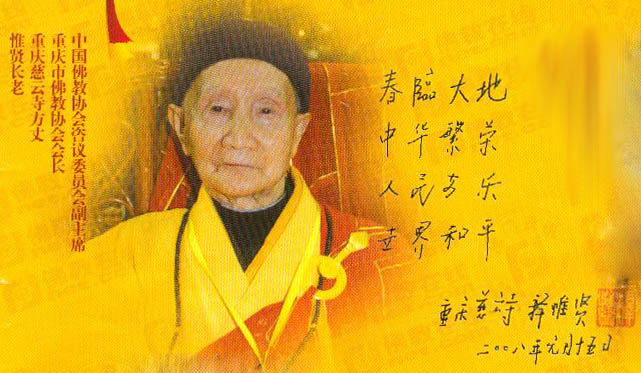 中国佛教协会咨议委员会副主席
重庆市佛教协会会长
重庆慈云寺方丈
惟贤长老
春臨大地
中华繁荣
人民安乐
世界和平
重庆慈云寺 释惟贤
二〇〇八年元月十五日